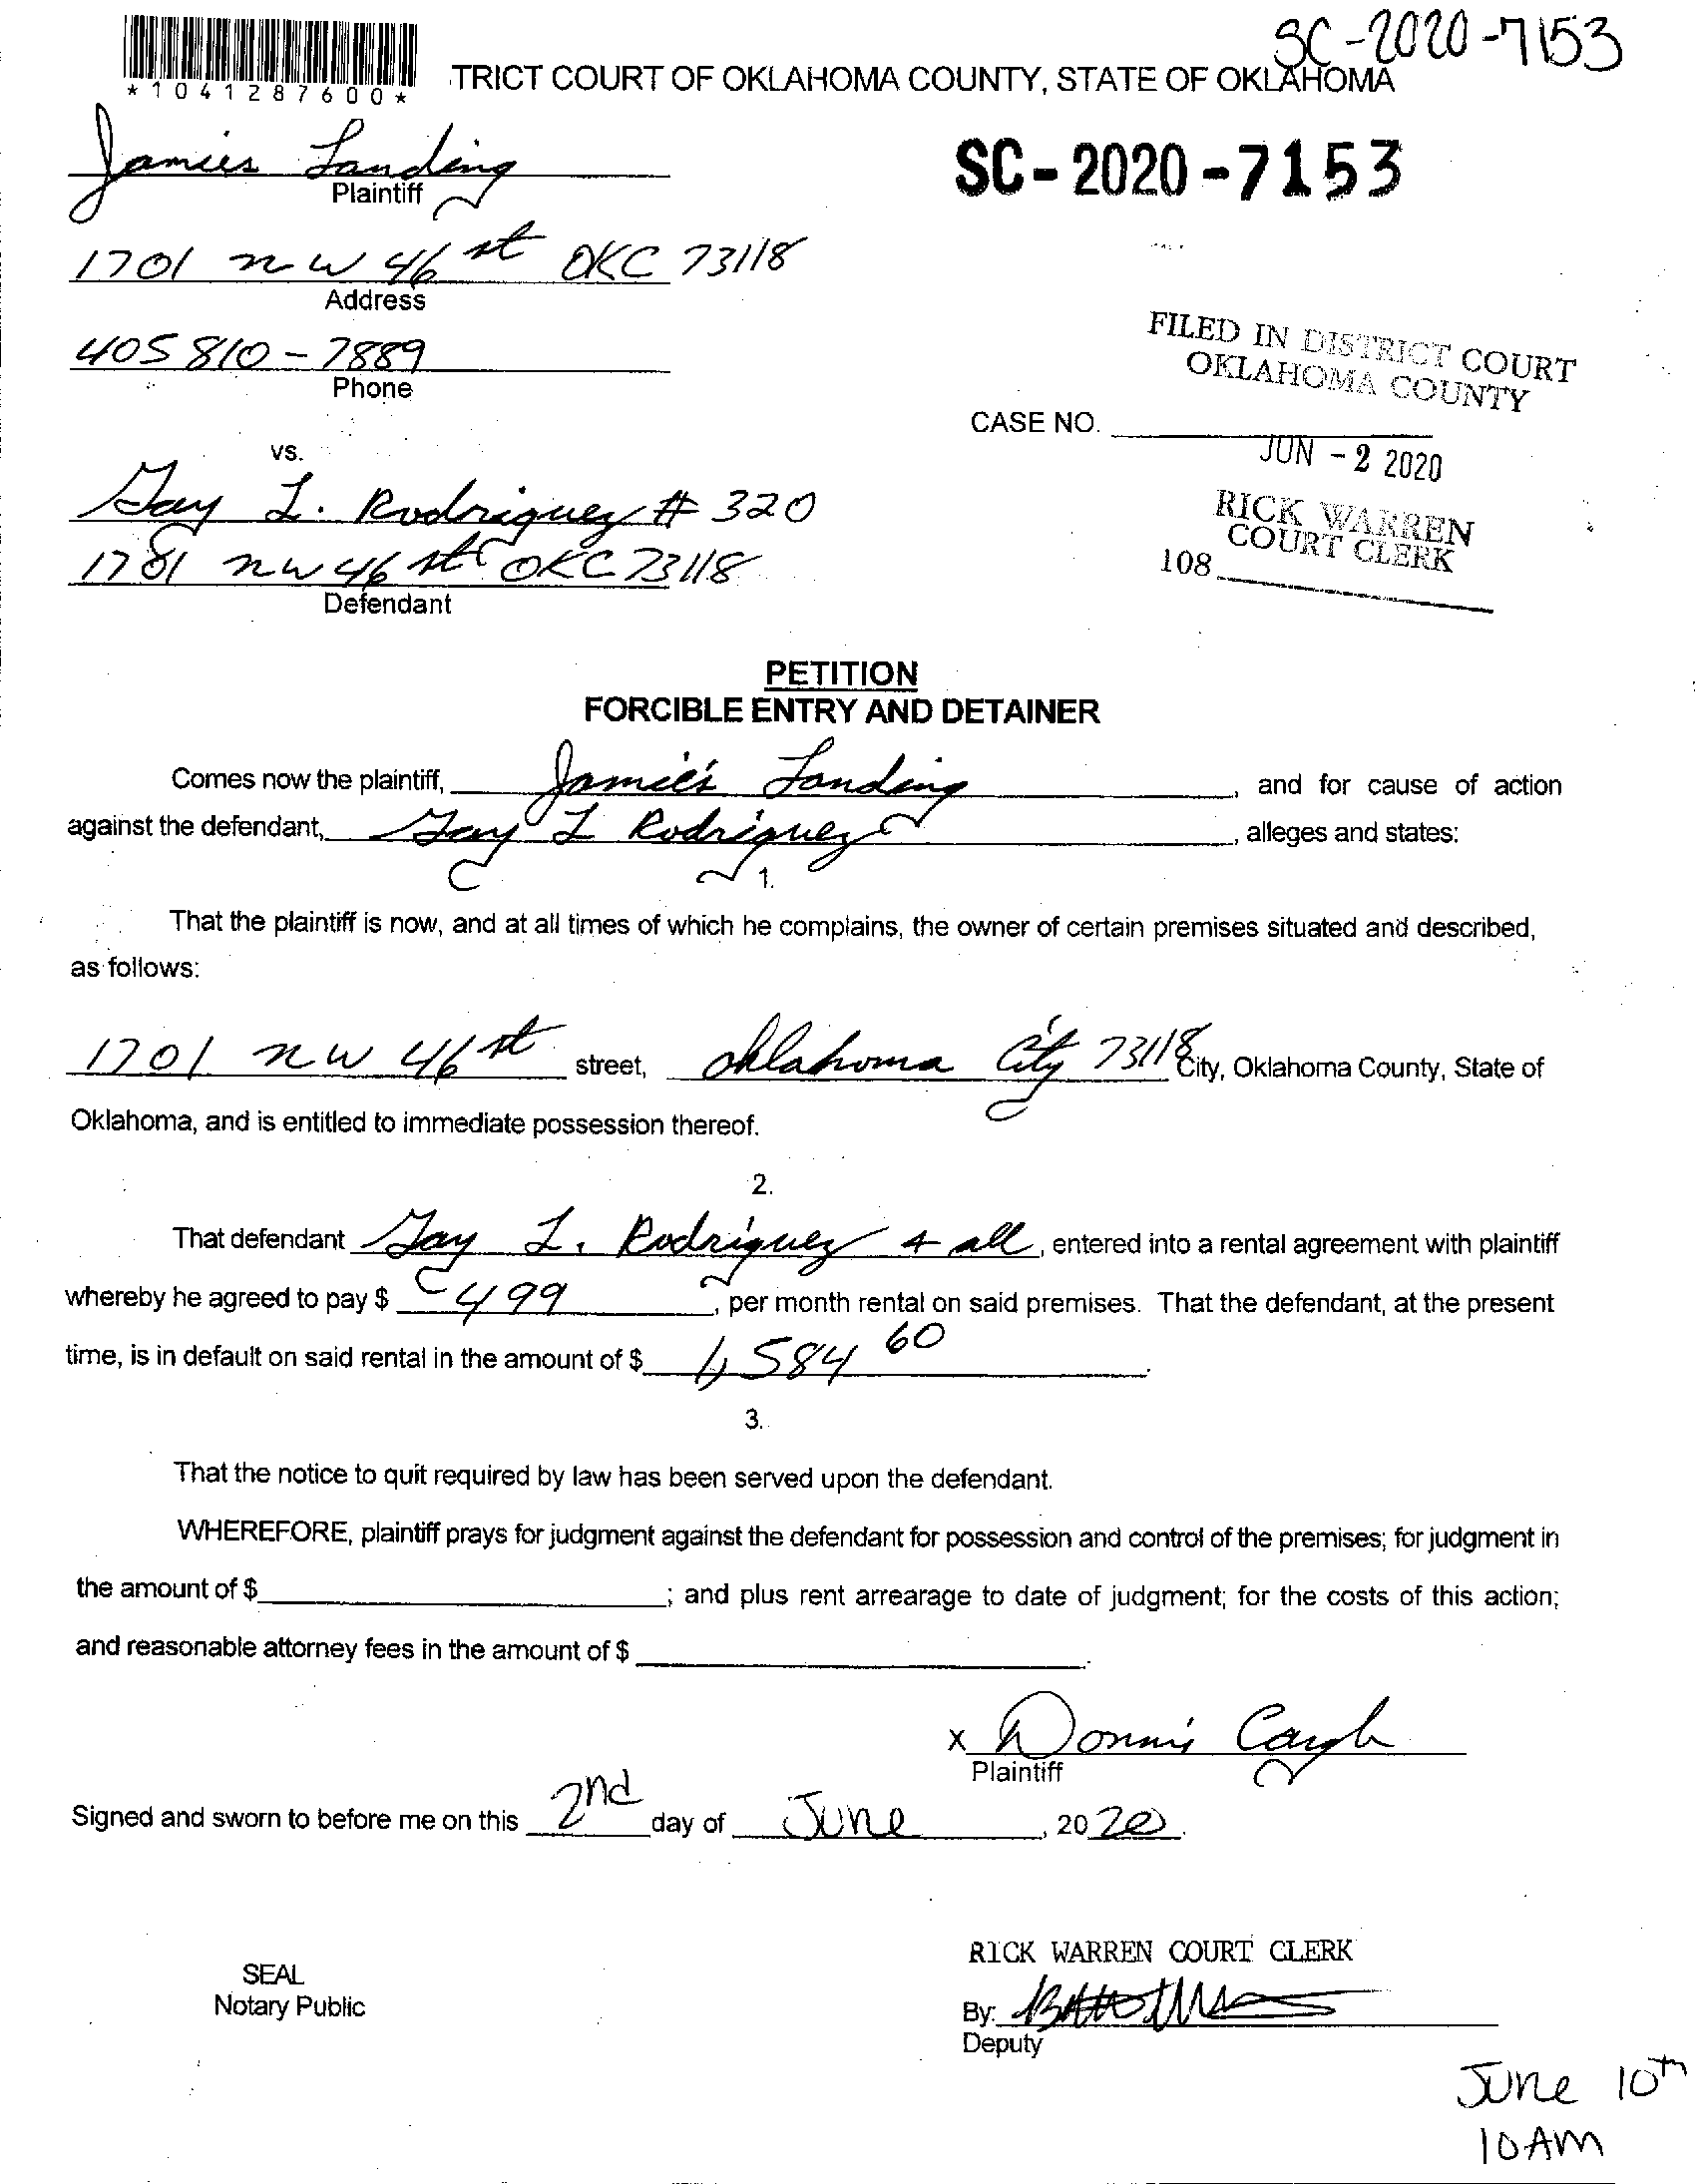 SC-2020-7153
*1041287600*
TRICT COURT OF OKLAHOMA COUNTY, STATE OF OKLAHOMA
Jamies Landing
Plaintiff
SC-2020-7153
1701 NW 46 st OKC 73118
Address
405 810-7889
Phone
FILED IN DISTRICT COURT
OKLAHOMA COUNTY
CASE NO.
JUN - 2 2020
RICK WARREN
COURT CLERK
108
vs.
Gay L. Rodriguez # 320
1701 NW 46 st OKC 73118
Defendant
PETITION
FORCIBLE ENTRY AND DETAINER
Comes now the plaintiff, Jamie's Landing, and for cause of action
against the defendant, Gay L Rodriguez, alleges and states:
1.
That the plaintiff is now, and at all times of which he complains, the owner of certain premises situated and described,
as follows:
1701 NW 46 st street, Oklahoma City 73118 City, Oklahoma County, State of
Oklahoma, and is entitled to immediate possession thereof.
2.
That defendant Gay L. Rodriguez & all, entered into a rental agreement with plaintiff
whereby he agreed to pay $ 499, per month rental on said premises. That the defendant, at the present
time, is in default on said rental in the amount of $ 1,584 60.
3.
That the notice to quit required by law has been served upon the defendant.
WHEREFORE, plaintiff prays for judgment against the defendant for possession and control of the premises; for judgment in
the amount of $; and plus rent arrearage to date of judgment; for the costs of this action;
and reasonable attorney fees in the amount of $.
x Donnis
Plaintiff
Signed and sworn to before me on this 2nd day of June, 2020.
RICK WARREN COURT CLERK
SEAL
Notary Public
By:
Deputy
June 10th
10AM